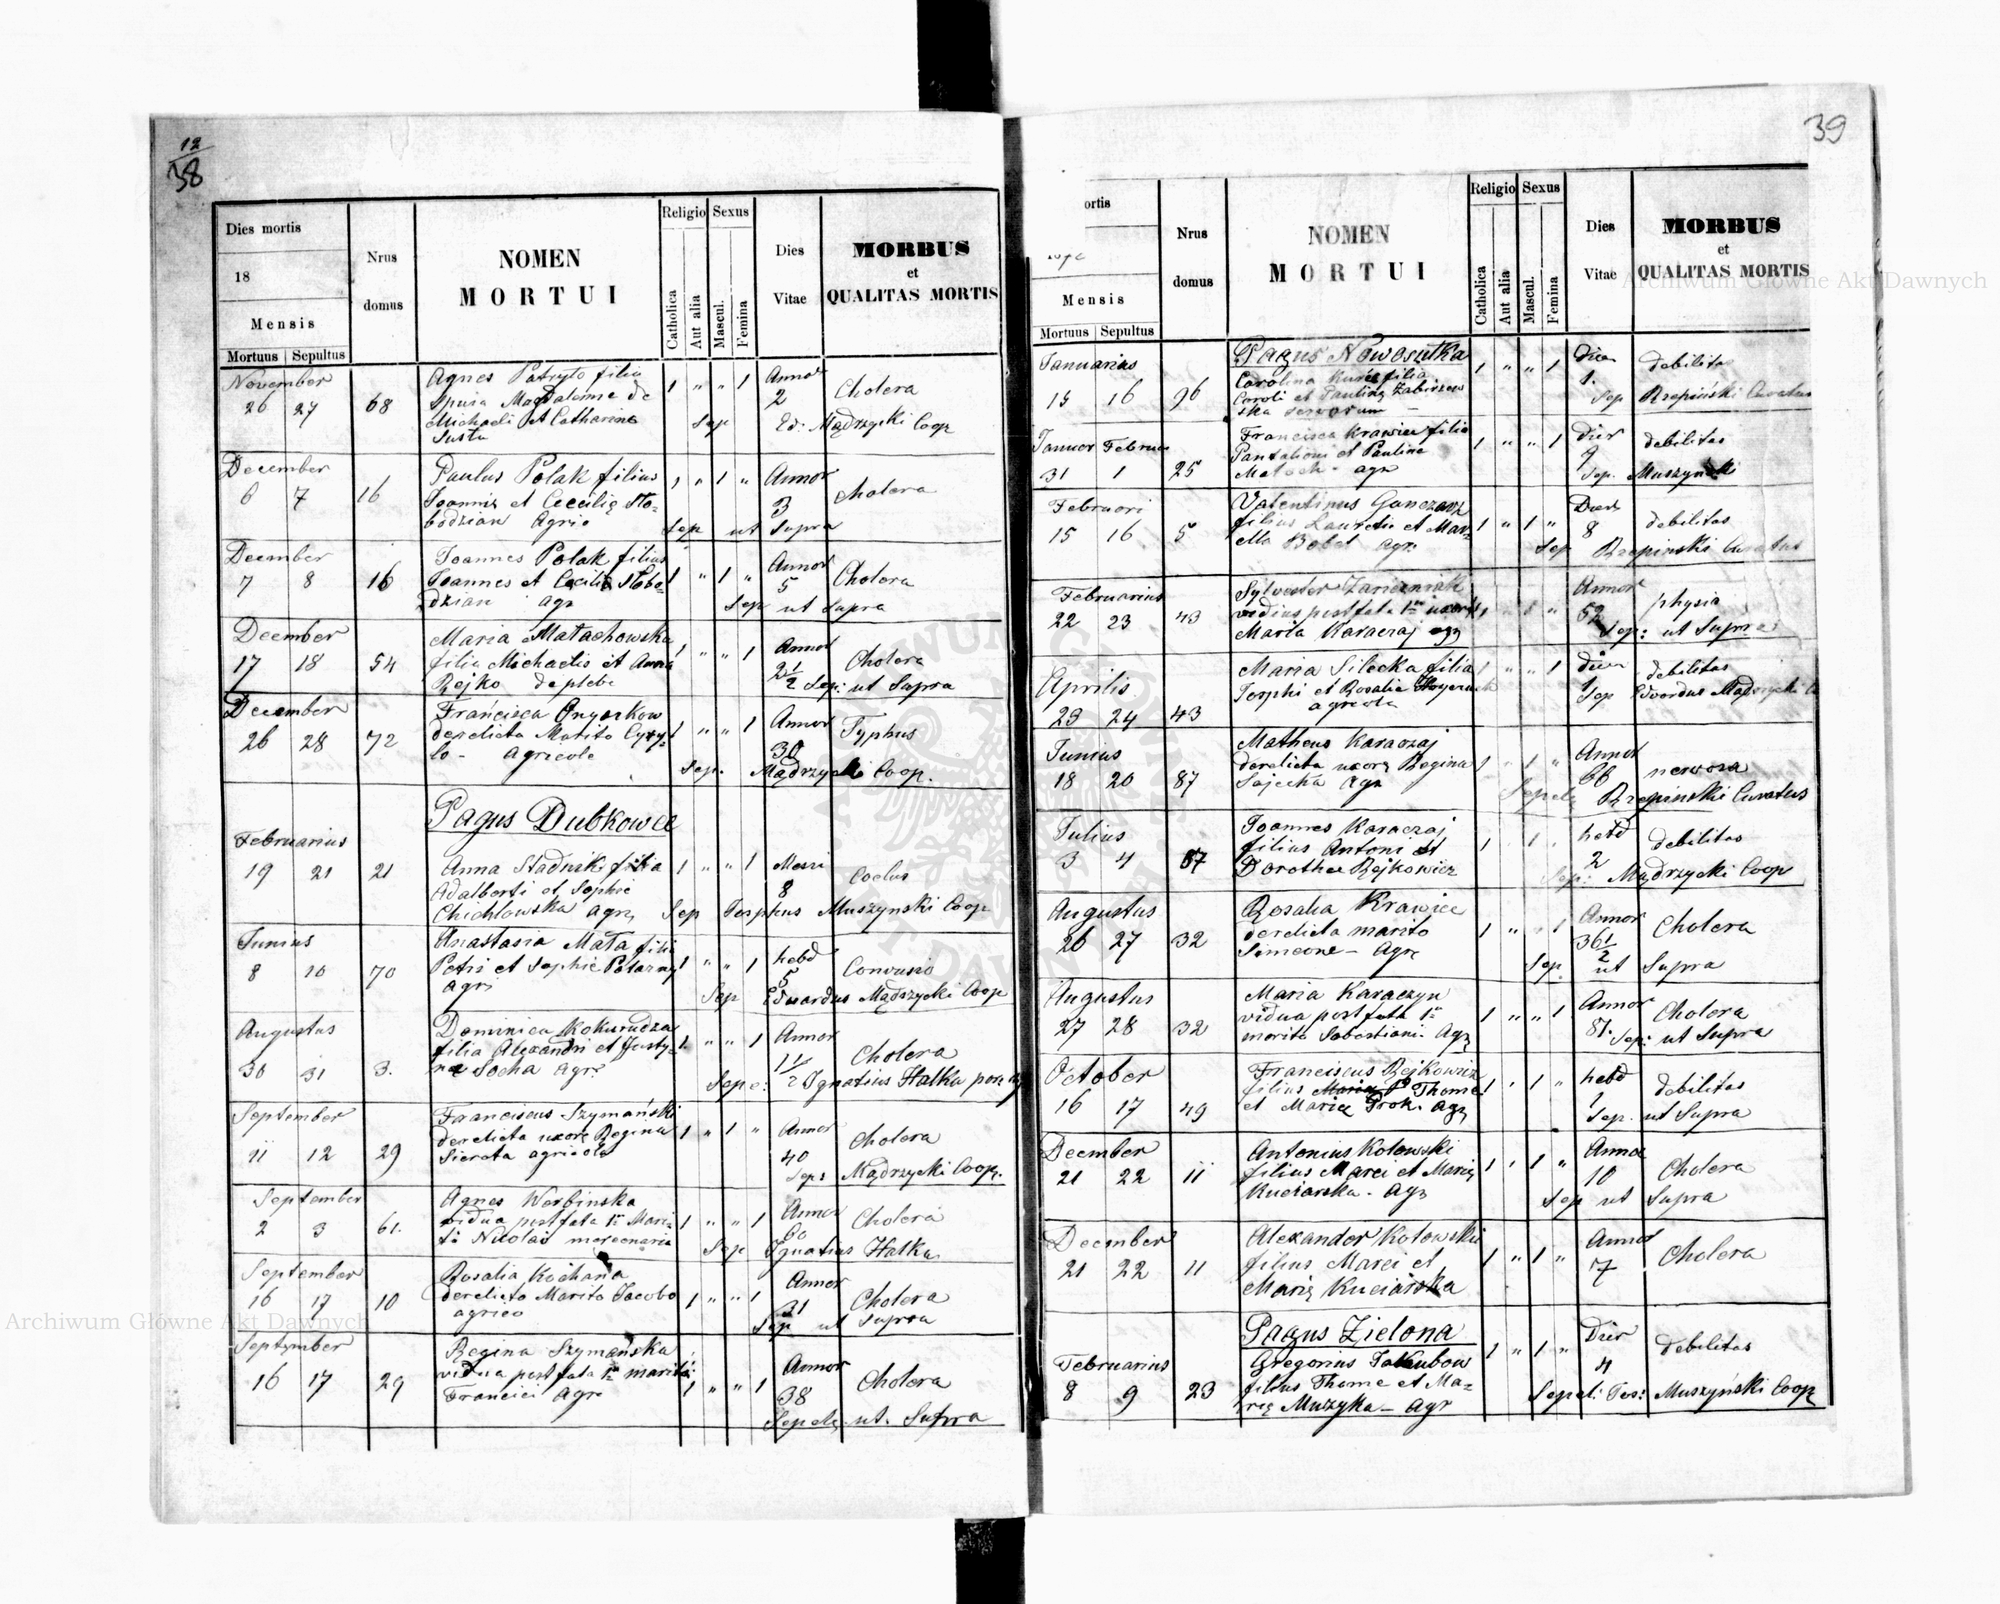 12
38
Dies mortis
18
Mensis
Mortuus Sepultus
Nrus domus
NOMEN
MORTUI
Religio Sexus
Catholica
Aut alia
Mascul.
Femina
Dies Vitae
MORBUS
et
QUALITAS MORTIS
November
26 27 68
Agnes filia 1 " " 1 Annor
spuria Magdalenne de 2 Cholera
Michaeli et Catharina Sep Ed: Mądrzycki Coop
Susta
December
6 7 16
Paulus Polak filius 1 " 1 " Annor
Joannis et Cecilię Sło- 3 Cholera
bodzian Agric Sep ut Supra
December
7 8 16
Joannes Polak filius 1 " 1 " Annor
Joannes et Cecilia Słobo 5 Cholera
dzian agr Sep ut Supra
December
17 18 54
Maria Małachowska 1 " " 1 Annor
filia Michaelis et Anna 2 1/2 Cholera
Rejko de plebe Sep: ut Supra
December
26 28 72
Francisca Onyszkow 1 " " 1 Annor
derelicta Marito Cyry- 30 Typhus
lo - Agricole Sep. Mądrzycki Coop.
Pagus Dubkowce
Februarius
19 21 21
Anna Stadnik filia 1 " " 1 Mensi
Adalberti et Sophie 8
Chichłowska agr Sep Josphus Muszynski Coop
Junius
8 10 70
Anastasia Mata filia 1 " " 1 hebd
Petri et Sophie 5
Agri Sep Eduardus Mądrzycki Coop
Augustus
30 31 3.
Dominica Kokurudza 1 " " 1 Annor
filia Alexandri et Justy- 1 1/2 Cholera
na Socha Agr: Sepe: Ignatius Hałka
September
11 12 29
Franciscus Szymański 1 " 1 " Annor
derelicta uxore Regina 40 Cholera
Sierota agricola Sep: Mądrzycki Coop.
September
2 3 61.
Agnes Werbinska 1 " " 1 Annor
vidua post fata 1mi Mari- 60 Cholera
ti Nicolao mercenaria Sep Ignatius Hałka
September
16 17 10
Rosalia Kochana 1 " " 1 Annor
derelicta Marito Jacobo 31 Cholera
agrico Sep ut Supra
September
16 17 29
Regina Szymańska 1 " " 1 Annor
vidua post fata mariti 38 Cholera
Francici Agri Sepele ut. Supra
39
ortis
Mensis
Mortuus Sepultus
Nrus domus
NOMEN
MORTUI
Religio Sexus
Catholica
Aut alia
Mascul.
Femina
Dies Vitae
MORBUS
et
QUALITAS MORTIS
Pagus Nowosułka
Januarius
15 16 96
Carolina filia 1 " " 1 Dier
Caroli et Paulinę Zabirzew 1. debilitas
ska Sep Rzepiński Curatus
Januar Februar
31 1 25
Francisca Krawiec filia 1 " " 1 Dier
Pantalioni et Pauline 9 debilitas
agr Sep. Muszynski
Februari
15 16 5
Valentinus Ganczarz 1 " 1 " Dier
filius Lauretii et Mar- 8 debilitas
ella agr. Sep Rzepinski Curatus
Februarius
22 23 43
Sylvester Annor
vidius post fata 1ae uxoris 52 physia
Maria Karaczaj agr Sep: ut Supra
Aprilis
23 24 43
Maria Silecka filia 1 " " 1 dier
Josphi et Rosalia 1 debilitas
agricola Sep Edvardus Mądrzycki
Junius
18 20 87
Matheus Karaczaj 1 " 1 " Annor
derelicta uxorę Regina 66 nervosa
Sajecka Agr Sepele Rzepinski Curatus
Julius
3 4 87
Joannes Karaczaj 1 1 hebd
filius Antoni et 2 debilitas
Dorothea Rejkowicz Sep: Mądrzycki Coop
Augustus
26 27 32
Rosalia Krawiec 1 " 1 Annor
derelicta marito 36 1/2 Cholera
Simeone - Agr Sep ut Supra
Augustus
27 28 32
Maria Karaczyn 1 " " 1 Annor
vidua post fata 1mi 81. Cholera
marito Sabastiani. Agr Sep: ut Supra
October
16 17 49
Franciscus Rejkowicz 1 1 " hebd
filius Thome 1 debilitas
et Marię Agr Sep. ut Supra
December
21 22 11
Antonius Kotowski 1 1 " Annor
filius Marci et Marię 10 Cholera
Kuciarska - Agr Sep ut Supra
December
21 22 11
Alexander Kotowski 1 " 1 " Annor
filius Marci et 7 Cholera
Marię Kuciarska
Pagus Zielona
Februarius
8 9 23
Gregorius Jakubow 1 " 1 " Dier
filius Thome et Ma- 4 debilitas
rię Muzyka - agr Sepel: Jos: Muszyński Coop
Archiwum Główne Akt Dawnych
Archiwum Główne Akt Dawnych